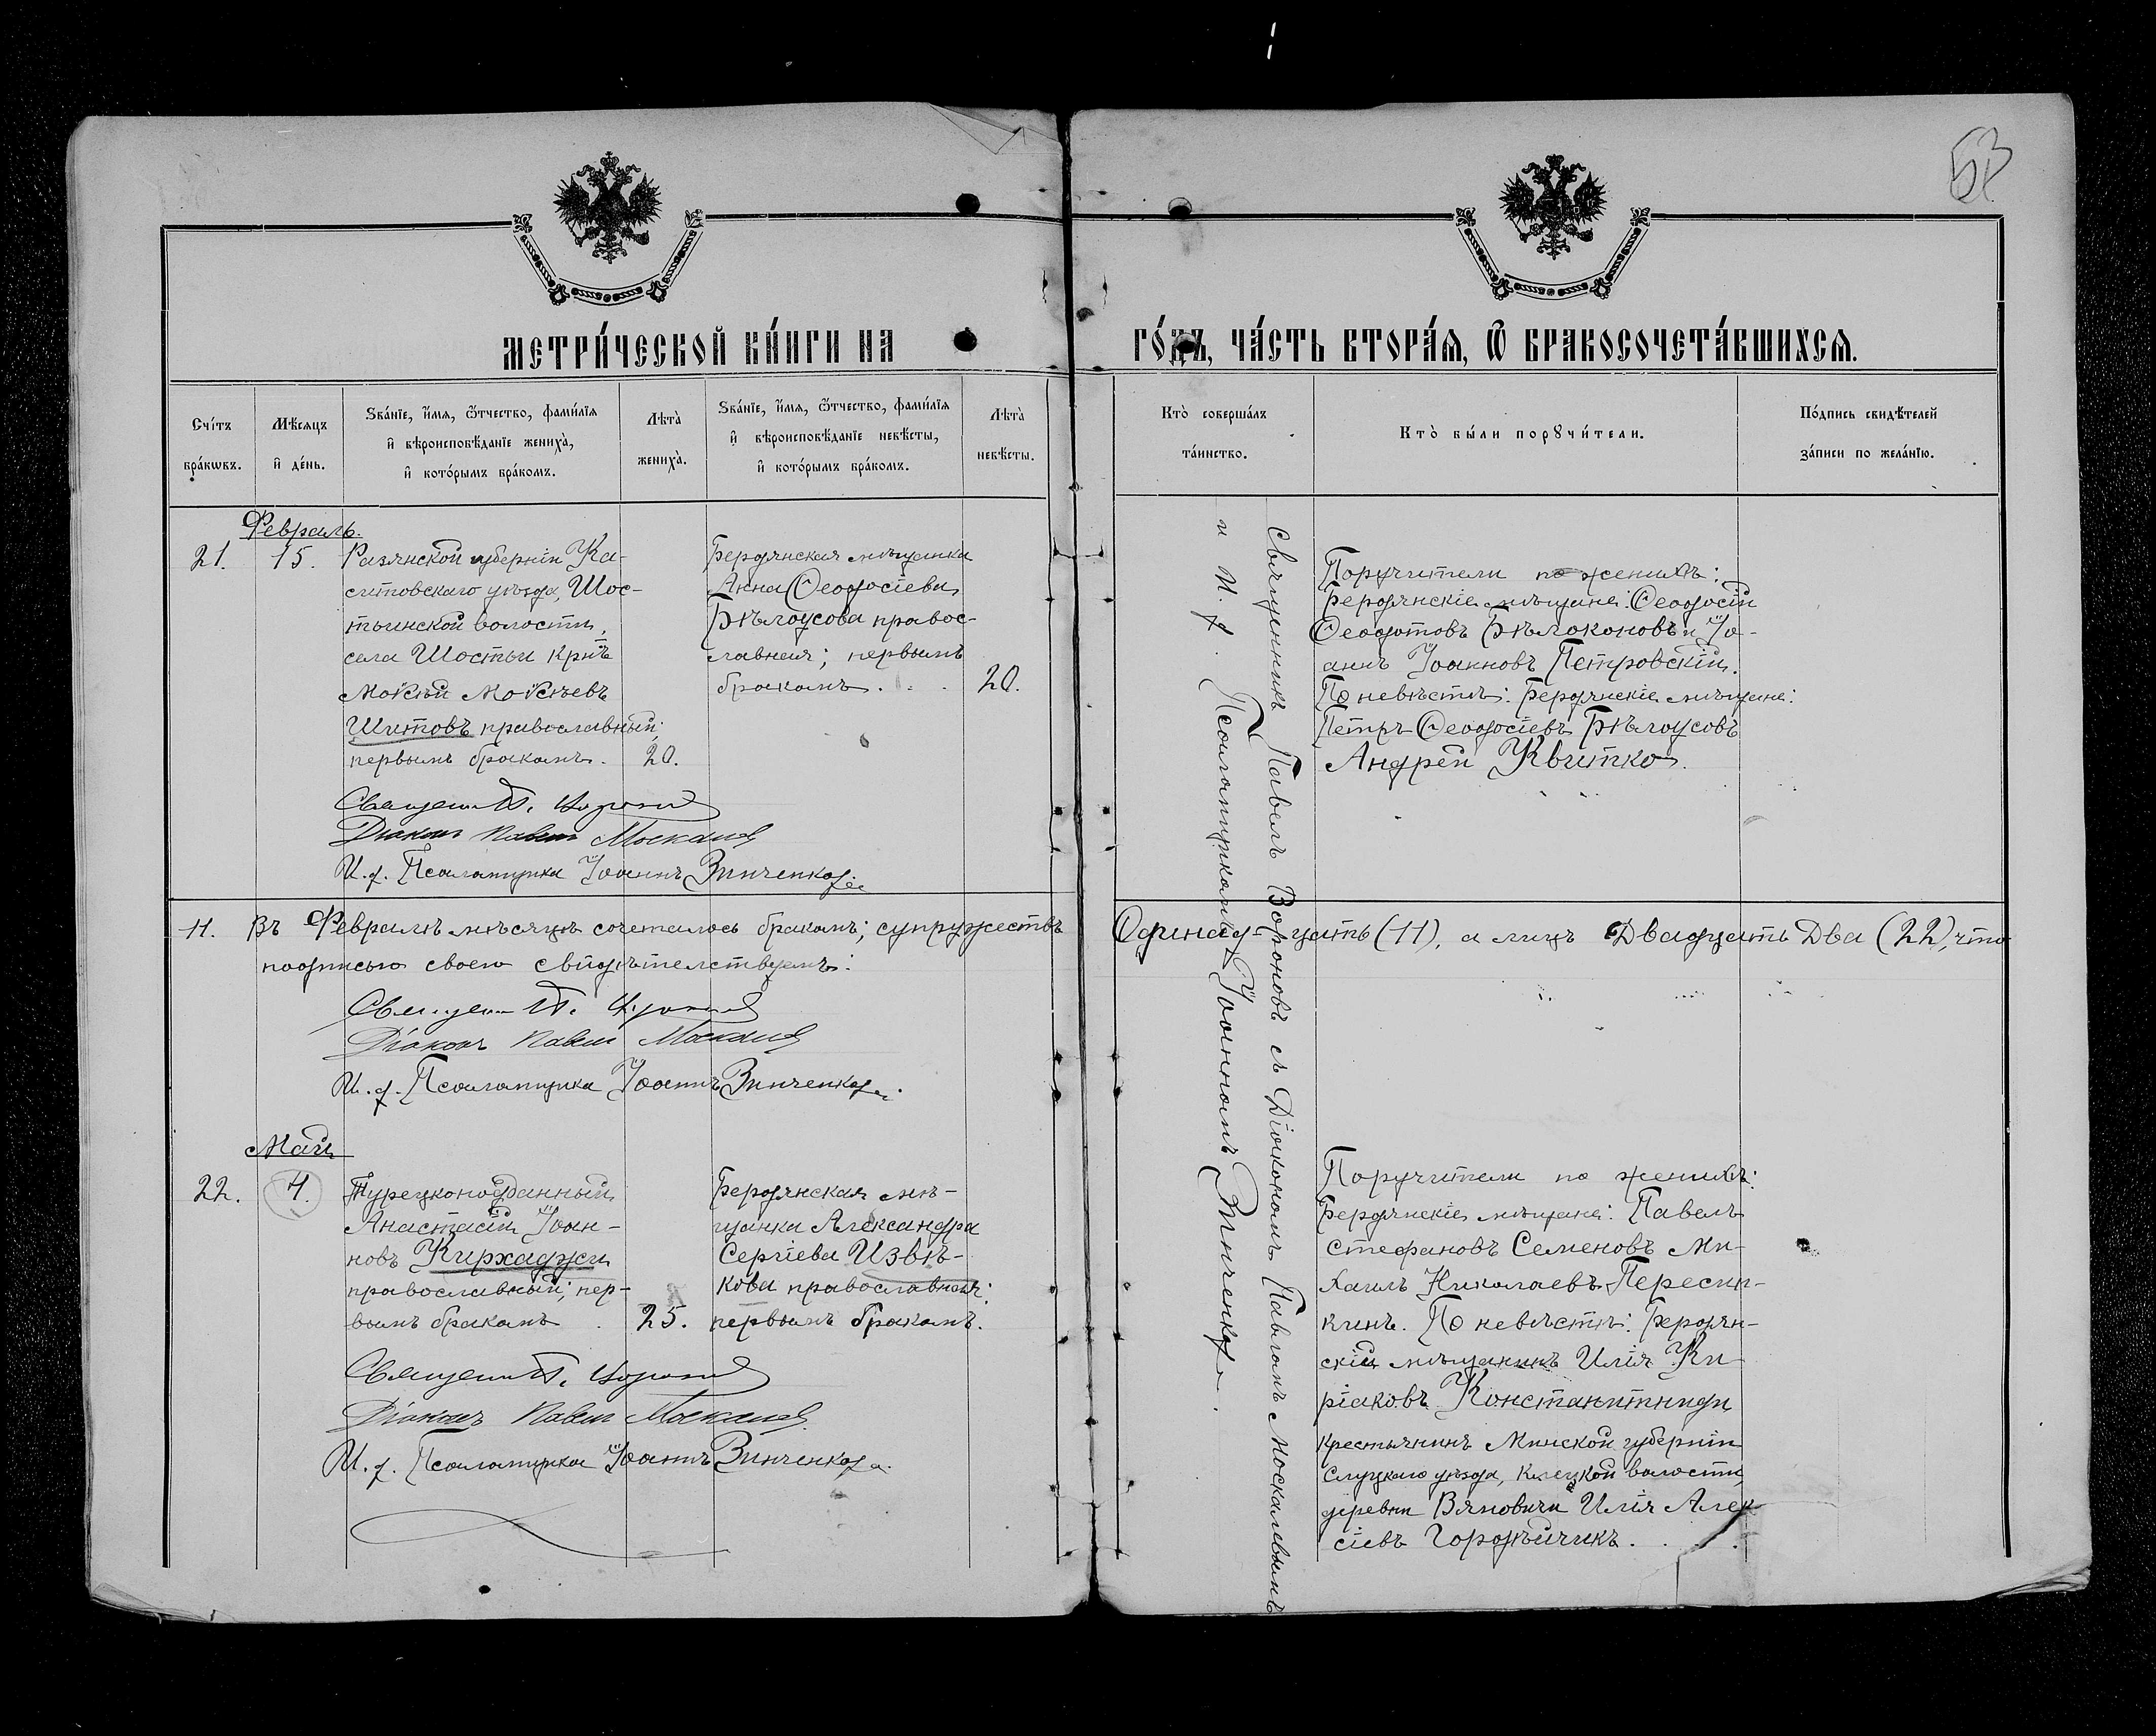 53
МЕТРИ́ЧЕСКОЙ КНИ́ГИ НА
ГО́ДЪ, ЧА́СТЬ ВТОРА́Я, Ѿ БРАКОСОЧЕТА́ВШИХСЯ.
Сче́тъ
бра́кѡвъ.
Мѣ́сяцъ
и҆ де́нь.
Зва́нїе, и҆́мя, ѻ҆́тчество, фами́лїя
и҆ вѣроисповѣ́данїе жениха̀,
и҆ кото́рымъ бра́комъ.
Лѣта̀
жениха̀.
Зва́нїе, и҆́мя, ѻ҆́тчество, фами́лїя
и҆ вѣроисповѣ́данїе невѣ́сты,
и҆ кото́рымъ бра́комъ.
Лѣта̀
невѣ́сты.
Кто̀ соверша́лъ
та́инство.
Кто̀ бы́ли порꙋчи́тели.
По́дпись свидѣ́телей
за́писи по жела́нїю.
Февраль.
21.
15.
Рязянской губерніи Ка-
ситовскаго уѣзда, Шос-
тьинской волости,
села Шостьи крнъ
Мокѣй Мокѣевъ
Шитовъ православный;
первымъ бракомъ.
20.
Бердянская мѣщанка
Анна Ѳеодосіева
Бѣлоусова правос-
лавная; первымъ
бракомъ. . .
20.
Священникъ Павелъ Вороновъ съ Діакономъ Павломъ Москалевымъ
и И. д. Псаломщикомъ Іоанномъ Зинченко
Поручители по женихѣ:
Бердянскіе мѣщане: Ѳеодосій
Ѳеодотовъ Бѣлоконовъ и Іо-
аннъ Іоанновъ Петровскій.
По невѣстѣ: Бердянскіе мѣщане:
Петръ Ѳеодосіевъ Бѣлоусовъ
Андрей Квитко.
Священ. П. Вороновъ
Діаконъ Павелъ Москалев
И. д. Псаломщика Іоаннъ Зинченко
11. Въ Февралѣ мѣсяцѣ сочеталось бракомъ; супружествъ Одинад-цать (11), а лицъ Двадцать Два (22), что
подписью своею свидѣтелствуемъ:
Священ. П. Вороновъ
Діаконъ Павелъ Москалев
И. д. Псаломщика Іоаннъ Зинченко
Май
22.
4.
Турецкоподданный
Анастасій Іоан-
новъ Кирхаджи
православный; пер-
вымъ бракомъ .
25.
Бердянская мѣ-
щанка Александра
Сергіева Извѣ-
кова православная;
первымъ бракомъ.
Поручители по женихѣ:
Бердянскіе мѣщане: Павелъ
Стефановъ Семеновъ Ми-
хаилъ Николаевъ Пересып-
кинъ. По невѣстѣ: Бердян-
скій мѣщанинъ Илія Ки-
ріаковъ Константиниди
Крестьянинъ Минской губерніи
Слуцкаго уѣзда, Клецкой волости,
деревни Вяновичи Илія Алек-
сіевъ Городѣйчикъ. . .
Священ. П. Вороновъ
Діаконъ Павелъ Москалев
И. д. Псаломщика Іоаннъ Зинченко